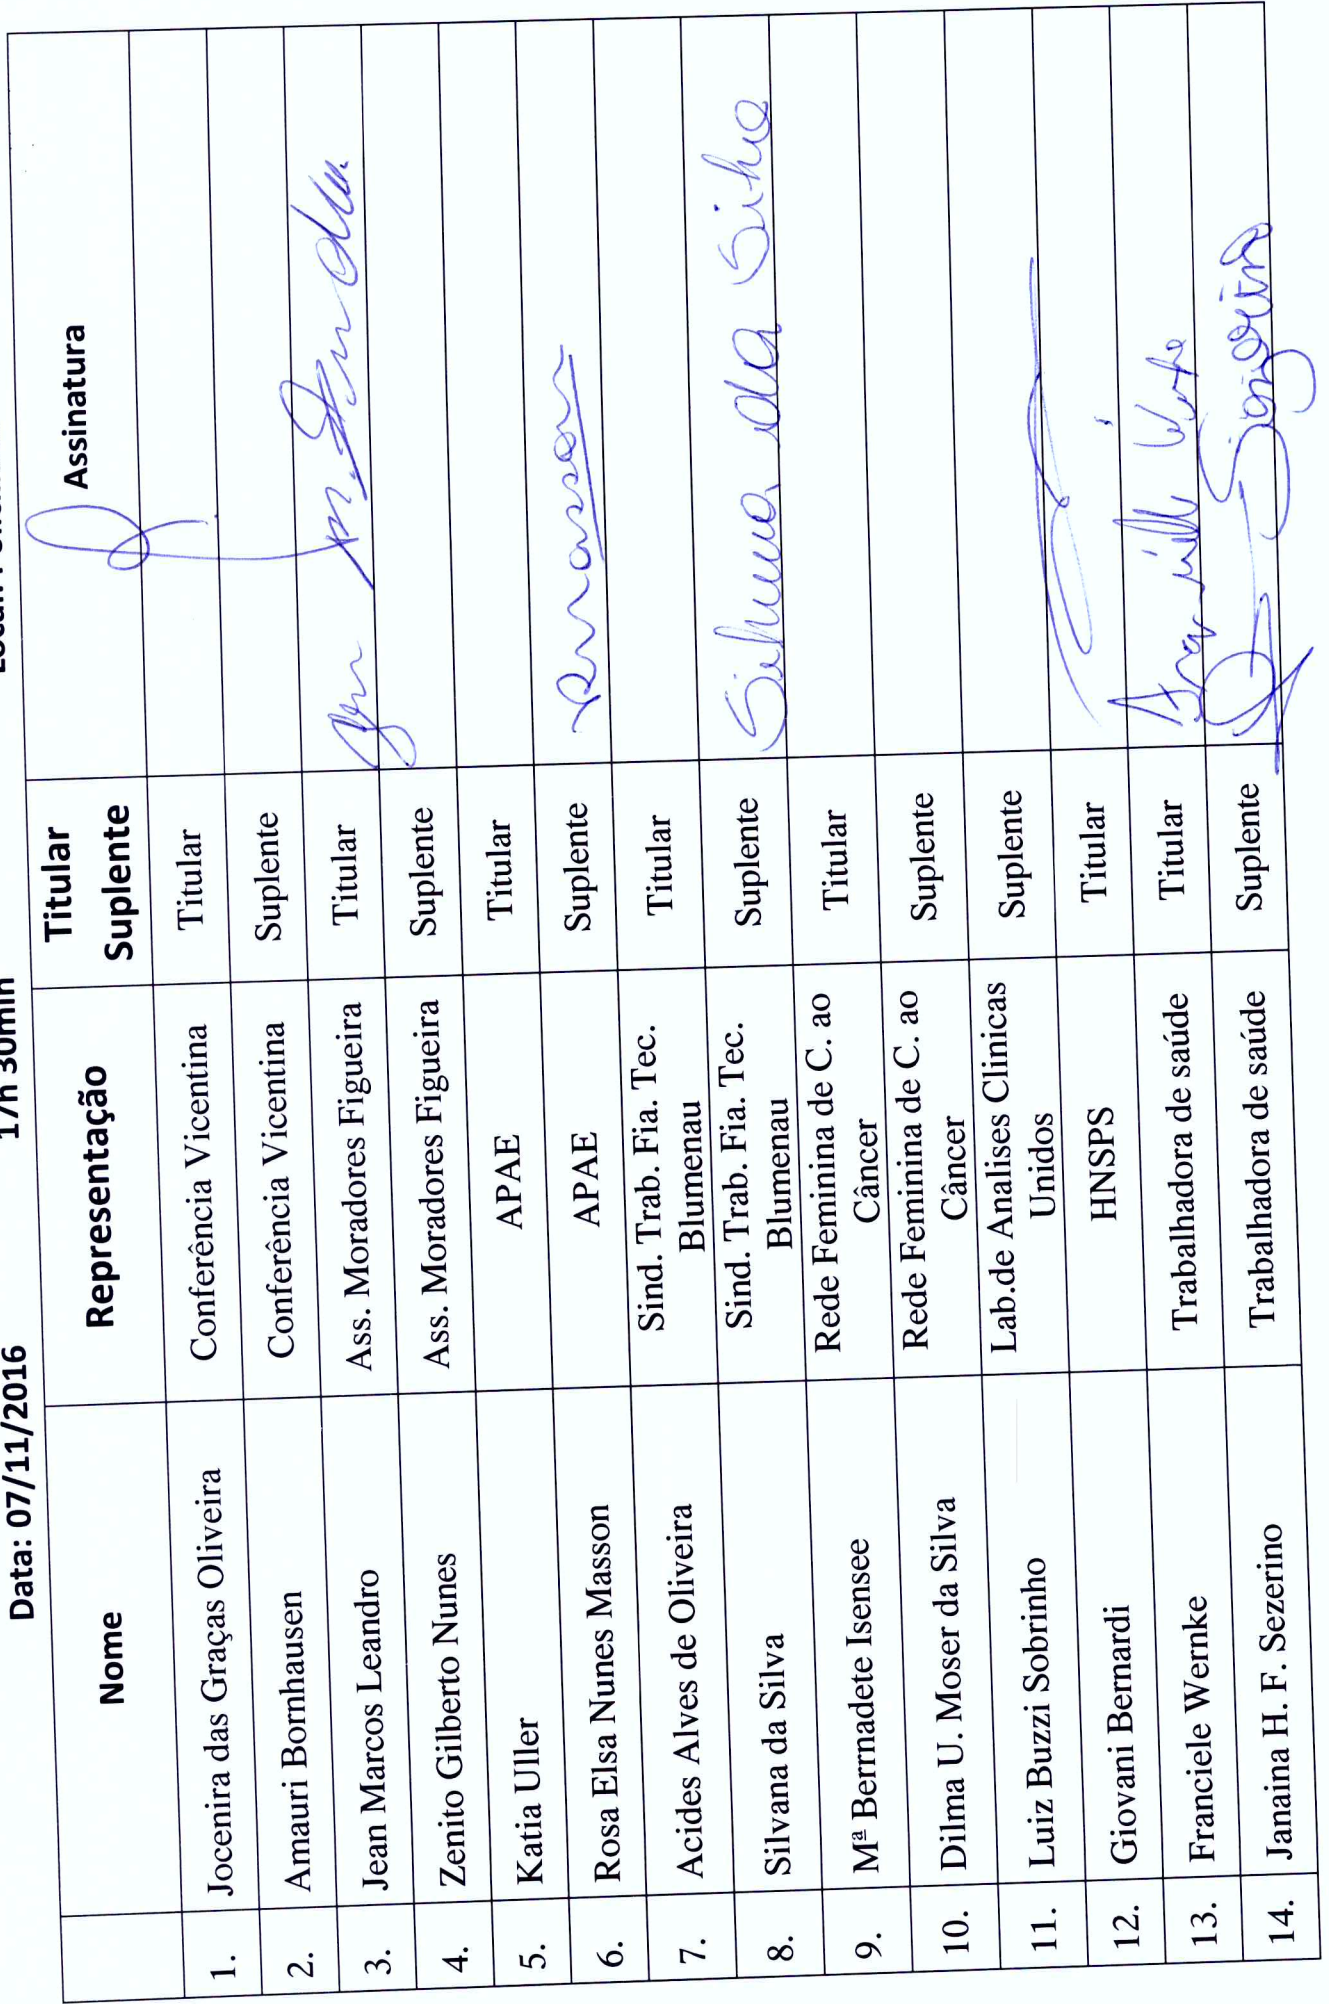 Data: 07/11/2016 17h 30min
Nome Representação Titular Assinatura
Suplente
1. Jocenira das Graças Oliveira Conferência Vicentina Titular
2. Amauri Bornhausen Conferência Vicentina Suplente
3. Jean Marcos Leandro Ass. Moradores Figueira Titular
4. Zenito Gilberto Nunes Ass. Moradores Figueira Suplente
5. Katia Uller APAE Titular
6. Rosa Elsa Nunes Masson APAE Suplente
7. Acides Alves de Oliveira Sind. Trab. Fia. Tec. Titular
Blumenau
8. Silvana da Silva Sind. Trab. Fia. Tec. Suplente Silvana da Silva
Blumenau
9. Mª Berrnadete Isensee Rede Feminina de C. ao Titular
Câncer
10. Dilma U. Moser da Silva Rede Feminina de C. ao Suplente
Câncer
11. Luiz Buzzi Sobrinho Lab.de Analises Clinicas Suplente
Unidos
12. Giovani Bernardi HNSPS Titular
13. Franciele Wernke Trabalhadora de saúde Titular
14. Janaina H. F. Sezerino Trabalhadora de saúde Suplente